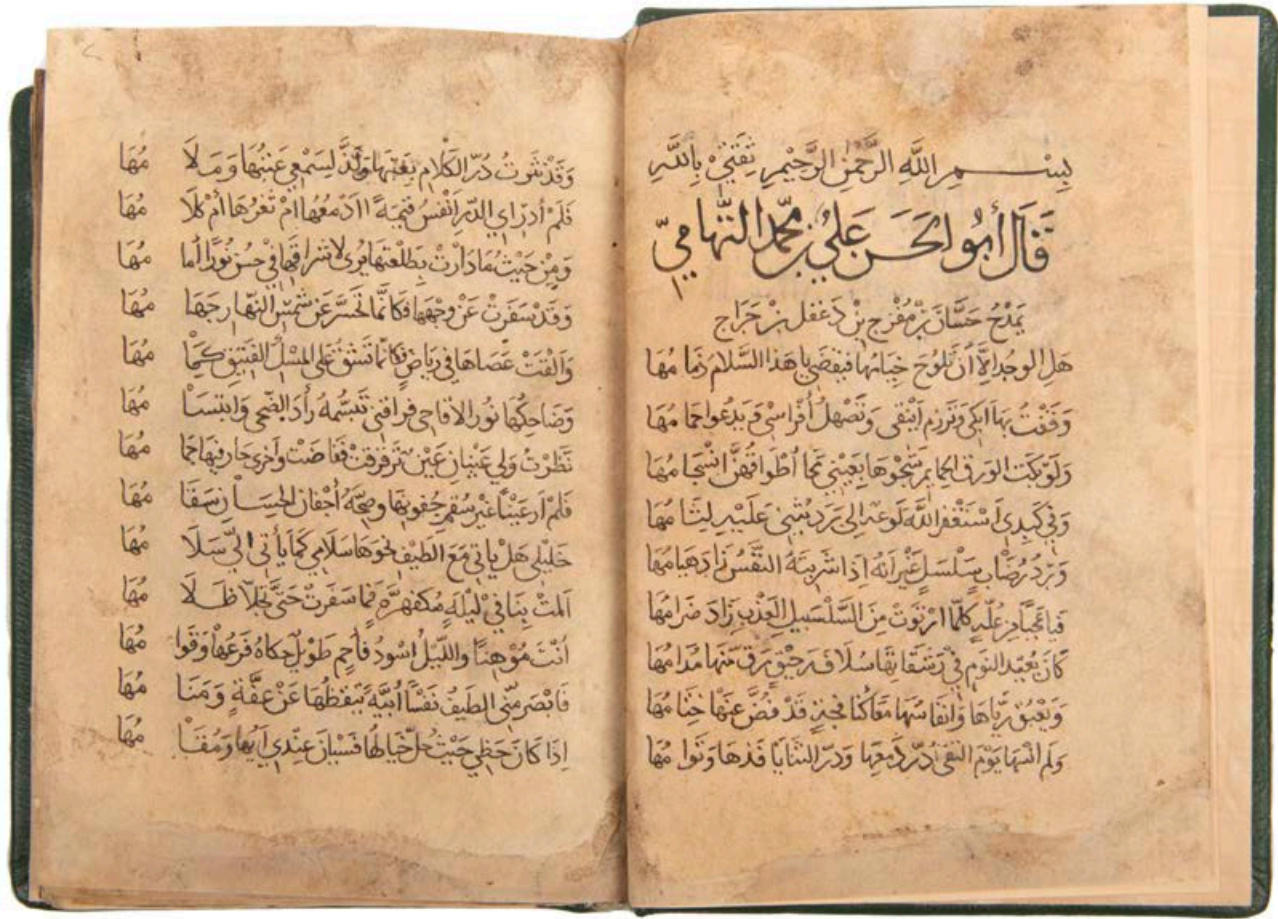 بِسْمِ اللَّهِ الرَّحْمٰنِ الرَّحِيْمِ ثِقَتِيْ بِاللَّهِ
قَالَ أَبُو الحَسَن عَلِيُّ بن مُحَمَّد التِّهَامِيّ
يَمْدَحُ حَسَّانَ بن مُفْرِجِ بْنِ دَغْفَل بن جَرَاح
هَلِ الوَجْدُ إِلَّا أَنْ تَلُوحَ خِيَامُهَا فَيَقْضِي بِإِهْدَاءِ السَّلَامِ ذِمَامُهَا
وَقَفْتُ بِهَا أَبْكِي وَتَرْزِمُ أَيْنُقِي وَتَصْهَلُ أَفْرَاسِي وَيَدْعُو حَمَامُهَا
وَلَوْ بَكَتِ الوُرْقُ الحَمَائِمُ شَجْوَهَا بِعَيْنِي مَحَا أَطْوَاقَهُنَّ انْسِجَامُهَا
وَفِي كَبِدِي أَسْتَغْفِرُ اللَّهَ لَوْعَةٌ إِلَى بَرَدٍ يُثْنِي عَلَيْهِ لِثَامُهَا
وَبَرْدِ رُضَابٍ سَلْسَلٍ غَيْرَ أَنَّهُ إِذَا شَرِبَتْهُ النَّفْسُ زَادَ هيَامُهَا
فَيَا عَجَبًا مِنْ غُلَّةٍ كُلَّمَا ارْتَوَتْ مِنَ السَّلْسَبِيلِ العَذْبِ زَادَ ضِرَامُهَا
كَأَنَّ بُعَيْدَ النَّوْمِ فِي رَشَفَاتِهَا سُلَافَ رَحِيْقٍ رَقَّ مِنْهَا مُدَامُهَا
وَيَعْبَقُ رَيَّاهَا وَأَنْفَاسُهَا مَعًا كَنَافِجَةٍ قَدْ فُضَّ عَنْهَا خِتَامُهَا
وَلَمْ أَنْسَهَا يَوْمَ التَقَى دُرُّ دَمْعِهَا وَدُرُّ الثَّنَايَا فَذُّهَا وَتُوَامُهَا
وَقَدْ نَثَرَتْ دُرَّ الكَلَامِ بِعَتْبِهَا وَلَذَّ لِسَمْعِي عَتْبُهَا وَمَلَامُهَا
فَلَمْ أَدْرِ أَيُّ الدُّرِّ أَنْفَسُ قِيمَةً أَأَدْمُعُهَا أَمْ ثَغْرُهَا أَمْ كَلَامُهَا
وَمِنْ حَيْثُ مَا دَارَتْ بِطَلْعَتِهَا يُرَى لِإِشْرَاقِهَا فِي حُسْنِ نُورٍ أَمَامُهَا
وَقَدْ سَفَرَتْ عَنْ وَجْهِهَا فَكَأَنَّمَا تَحَسَّرَ عَنْ شَمْسِ النَّهَارِ جَهَامُهَا
وَأَلْقَتْ عَصَاهَا فِي رِيَاضٍ كَأَنَّمَا تَشَقَّقُ عَلَى المِسْكِ الفَتِيقِ كِمَامُهَا
وَضَاحَكَهَا نَوْرُ الأَقَاحِي فَرَاقَنِي تَبَسُّمُهُ رَأْدَ الضُّحَى وَابْتِسَامُهَا
نَظَرْتُ وَلِي عَيْنَانِ عَيْنٌ تَرَقْرَقَتْ فَفَاضَتْ وَأُخْرَى حَارَ فِيهَا جَمَامُهَا
فَلَمْ أَرَ عَيْنًا غَيْرَ سُقْمِ جُفُونِهَا وَصِحَّةُ أَجْفَانِ الحِسَانِ سَقَامُهَا
خَلِيلَيَّ هَلْ يَأْتِي مَعَ الطَّيْفِ نَحْوَهَا سَلَامِي كَمَا يَأْتِي إِلَيَّ سَلَامُهَا
أَلَمَّتْ بِنَا فِي لَيْلَةٍ مُكْفَهِرَّةٍ فَمَا سَفَرَتْ حَتَّى تَجَلَّا ظَلَامُهَا
أَتَتْ مَوْهِنًا وَاللَّيْلُ أَسْوَدُ فَاحِمٌ طَوِيْلٌ حَكَاهُ فَرْعُهَا وَقَوَامُهَا
فَأَبْصَرَ مِنِّي الطَّيْفُ نَفْسًا أَبِيَّةً تَيَقُّظُهَا عَنْ عِفَّةٍ وَمَنَامُهَا
إِذَا كَانَ حَظِّي حَيْثُ حَلَّ خَيَالُهَا فَسِيَّانَ عِنْدِي نَأْيُهَا وَمُقَامُهَا